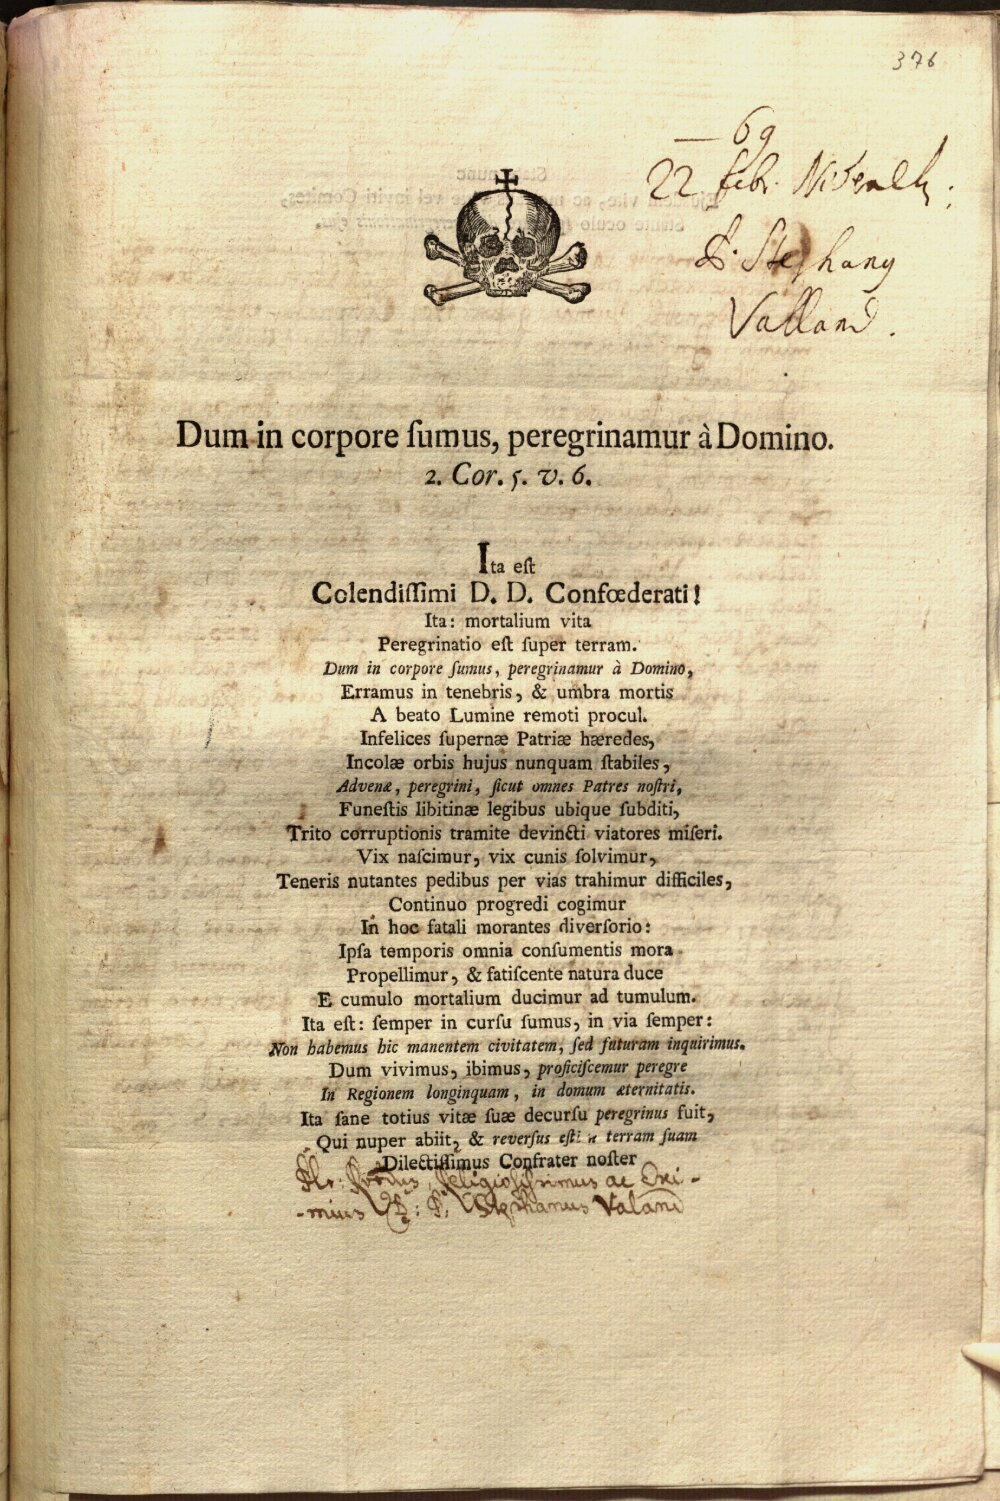 376
69
22 febr.
P. Stephany
Valland.
Dum in corpore ſumus, peregrinamur à Domino.
2. Cor. 5. v. 6.
Ita eſt
Colendiſſimi D. D. Confœderati!
Ita: mortalium vita
Peregrinatio eſt ſuper terram.
Dum in corpore ſumus, peregrinamur à Domino,
Erramus in tenebris, & umbra mortis
A beato Lumine remoti procul.
Infelices ſupernæ Patriæ hæredes,
Incolæ orbis hujus nunquam ſtabiles,
Advenæ, peregrini, ſicut omnes Patres noſtri,
Funeſtis libitinæ legibus ubique ſubditi,
Trito corruptionis tramite devincti viatores miſeri.
Vix naſcimur, vix cunis ſolvimur,
Teneris nutantes pedibus per vias trahimur difficiles,
Continuo progredi cogimur
In hoc fatali morantes diverſorio:
Ipſa temporis omnia conſumentis mora
Propellimur, & fatiſcente natura duce
E cumulo mortalium ducimur ad tumulum.
Ita eſt: ſemper in curſu ſumus, in via ſemper:
Non habemus hic manentem civitatem, ſed futuram inquirimus.
Dum vivimus, ibimus, proficiſcemur peregre
In Regionem longinquam, in domum æternitatis.
Ita ſane totius vitæ ſuæ decurſu peregrinus fuit,
Qui nuper abiit, & reverſus eſt in terram ſuam
Dilectiſſimus Confrater noſter
Religiosissimus ac Exi-
-mius D: P: Stephanus Valand